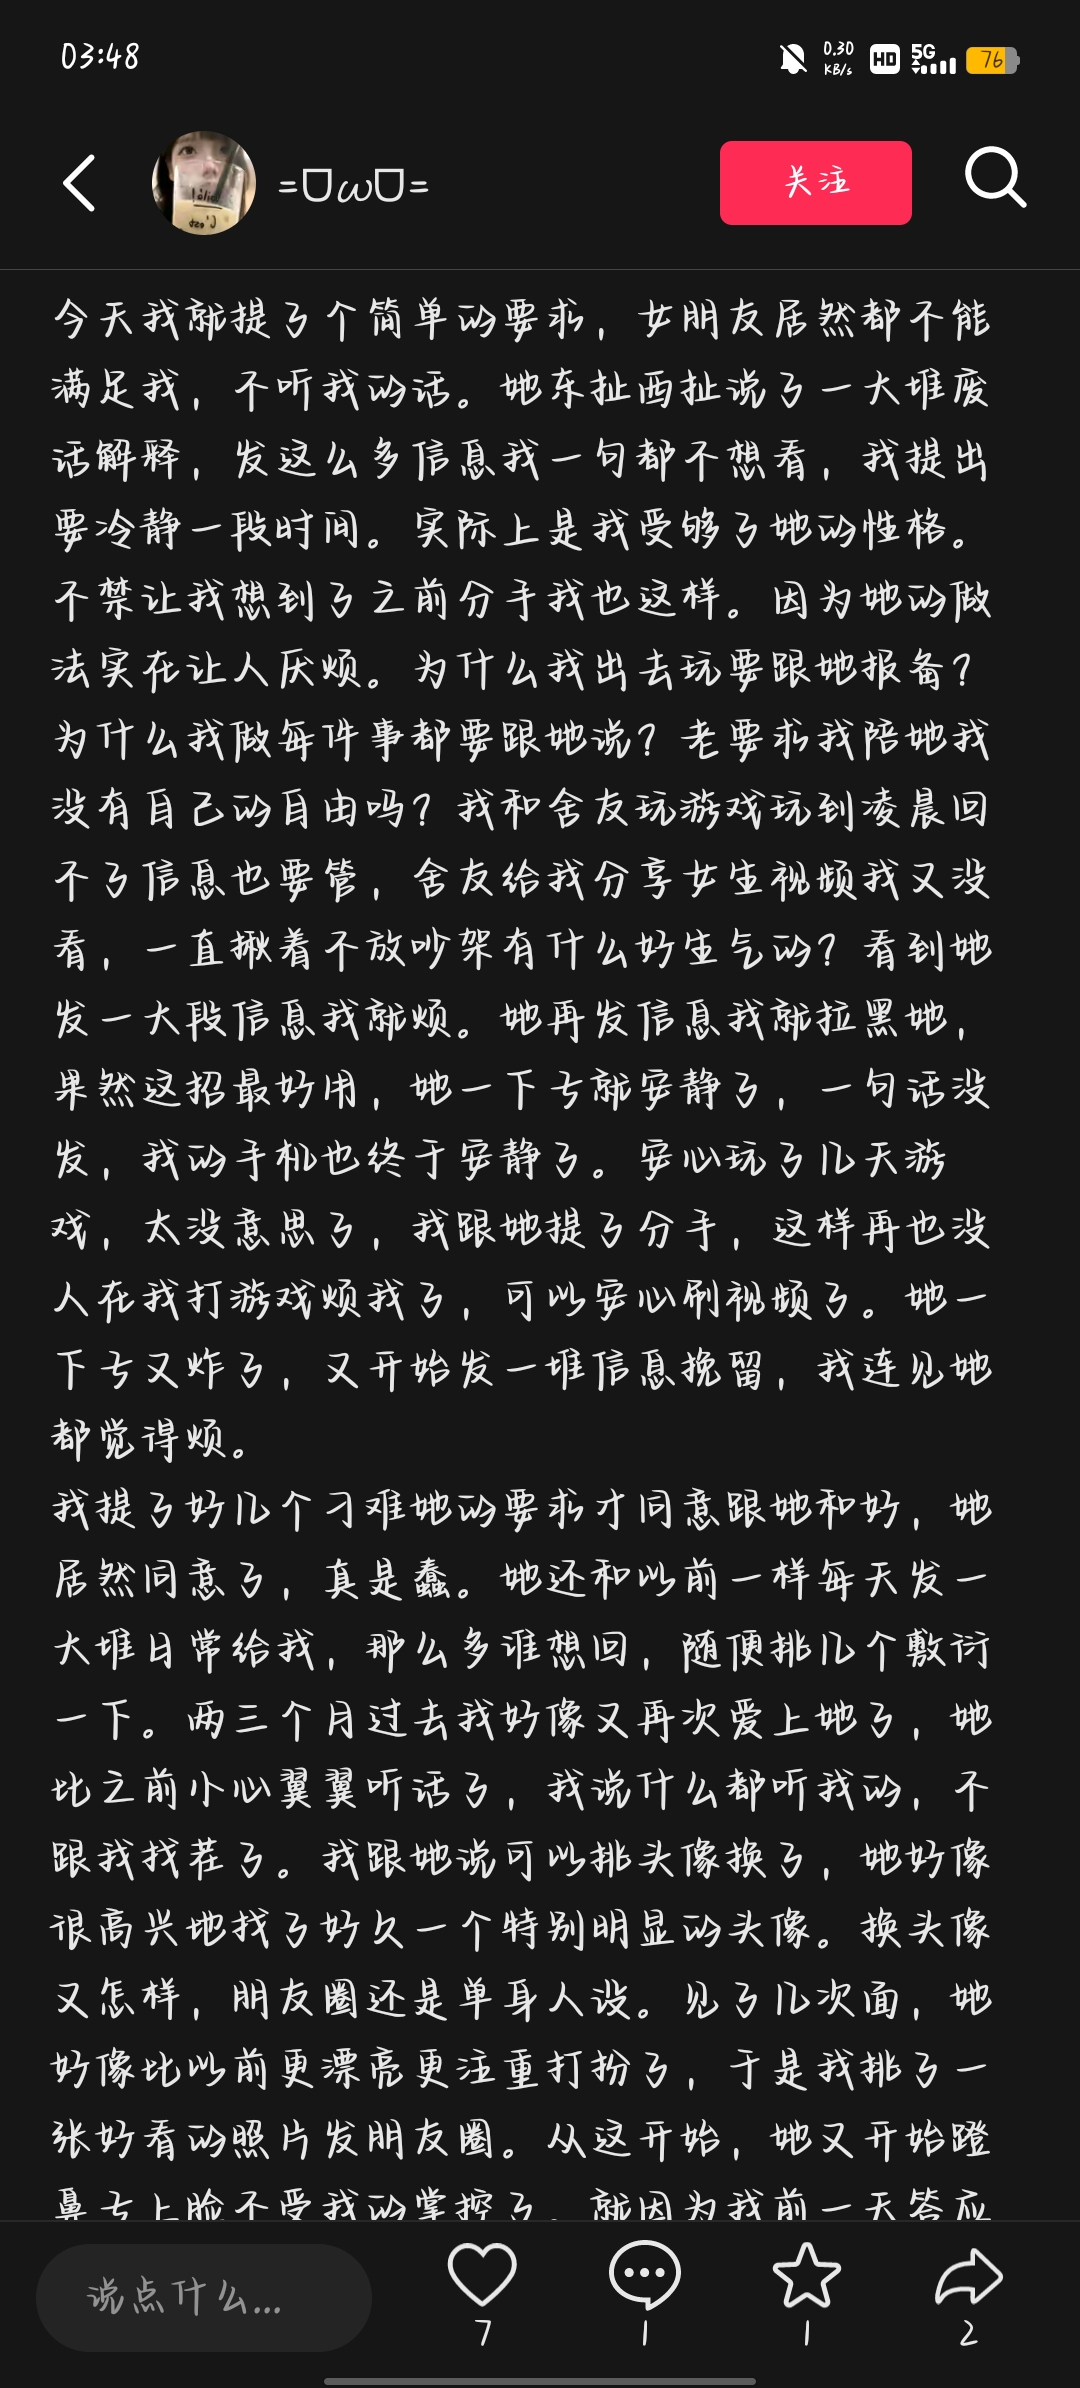 03:48
0.30 KB/s HD 5G 76
=ᗜωᗜ=
关注
今天我就提了个简单的要求，女朋友居然都不能
满足我，不听我的话。她东扯西扯说了一大堆废
话解释，发这么多信息我一句都不想看，我提出
要冷静一段时间。实际上是我受够了她的性格。
不禁让我想到了之前分手我也这样。因为她的做
法实在让人厌烦。为什么我出去玩要跟她报备？
为什么我做每件事都要跟她说？老要求我陪她我
没有自己的自由吗？我和舍友玩游戏玩到凌晨回
不了信息也要管，舍友给我分享女生视频我又没
看，一直揪着不放吵架有什么好生气的？看到她
发一大段信息我就烦。她再发信息我就拉黑她，
果然这招最好用，她一下子就安静了，一句话没
发，我的手机也终于安静了。安心玩了几天游
戏，太没意思了，我跟她提了分手，这样再也没
人在我打游戏烦我了，可以安心刷视频了。她一
下子又炸了，又开始发一堆信息挽留，我连见她
都觉得烦。
我提了好几个刁难她的要求才同意跟她和好，她
居然同意了，真是蠢。她还和以前一样每天发一
大堆日常给我，那么多谁想回，随便挑几个敷衍
一下。两三个月过去我好像又再次爱上她了，她
比之前小心翼翼听话了，我说什么都听我的，不
跟我找茬了。我跟她说可以挑头像换了，她好像
很高兴地找了好久一个特别明显的头像。换头像
又怎样，朋友圈还是单身人设。见了几次面，她
好像比以前更漂亮更注重打扮了，于是我挑了一
张好看的照片发朋友圈。从这开始，她又开始蹬
鼻子上脸不受我的掌控了。就因为我前一天答应
说点什么...
7
1
1
2